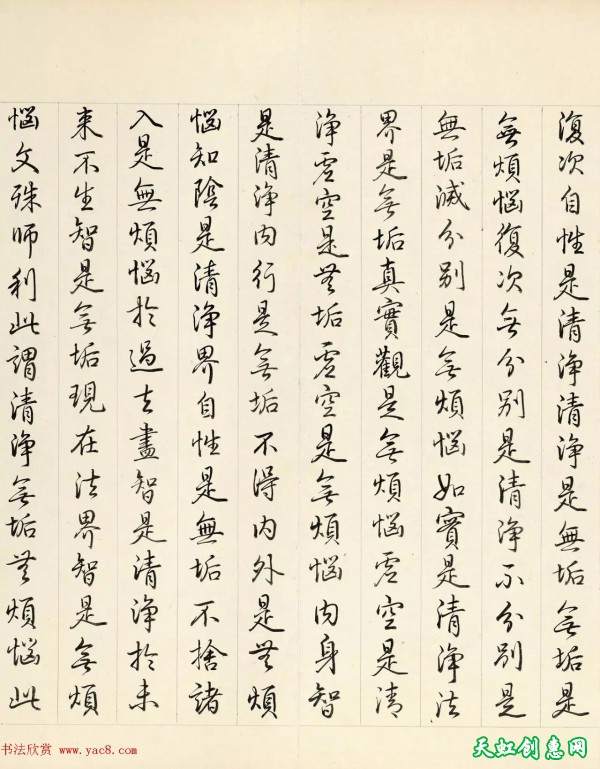 復次自性是清淨清淨是無垢無垢是
無煩惱復次無分別是清淨不分別是
無垢滅分別是無煩惱如實是清淨法
界是無垢真實觀是無煩惱虛空是清
淨虛空是無垢虛空是無煩惱內身智
是清淨內行是無垢不得內外是無煩
惱知陰是清淨界自性是無垢不捨諸
入是無煩惱於過去盡智是清淨於未
來不生智是無垢現在法界智是無煩
惱文殊師利此謂清淨無垢無煩惱此
书法欣赏 www.yac8.com
天虹创惠网